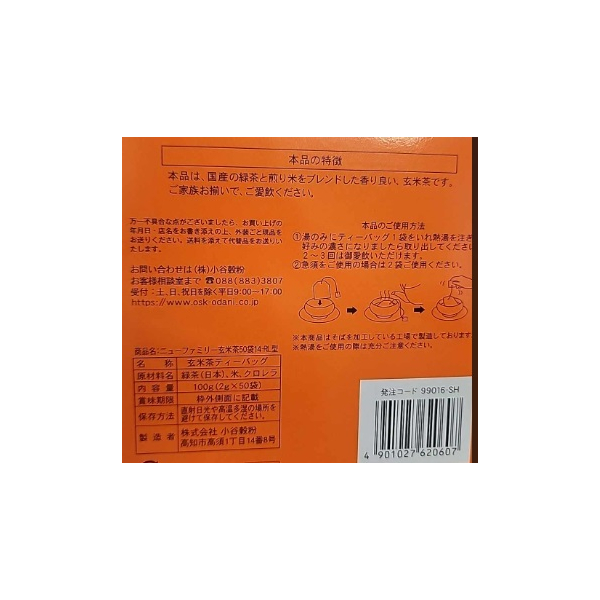 本品の特徴
本品は、国産の緑茶と煎り米をブレンドした香り良い、玄米茶です。
ご家族お揃いで、ご愛飲ください。
万一不具合な点がございましたら、お買い上げの
年月日・店名をお書き添えの上、外装ごと現品を
お送りください。送料を添えて代替品をお送りいた
します。
お問い合わせは(株)小谷穀粉
お客様相談室まで ☎088(883)3807
受付：土、日、祝日を除く平日9:00ー17:00
https://www.osk-odani.co.jp
本品のご使用方法
①湯のみにティーバッグ1袋をいれ熱湯を注ぎ
好みの濃さになりましたら取り出してください
2〜3回は御愛飲いただけます。
②急須をご使用の場合は2袋ご使用ください。
※本商品はそばを加工している工場で製造しております。
※熱湯をご使用の際は充分ご注意ください。
商品名：ニューファミリー玄米茶50袋14号L型
名称 玄米茶ティーバッグ
原材料名 緑茶(日本)、米、クロレラ
内容量 100g(2g×50袋)
賞味期限 枠外側面に記載
保存方法 直射日光や高温多湿の場所を
避けて保存してください。
製造者 株式会社 小谷穀粉
高知市高須1丁目14番8号
発注コード 99016-SH
4 901027 620607